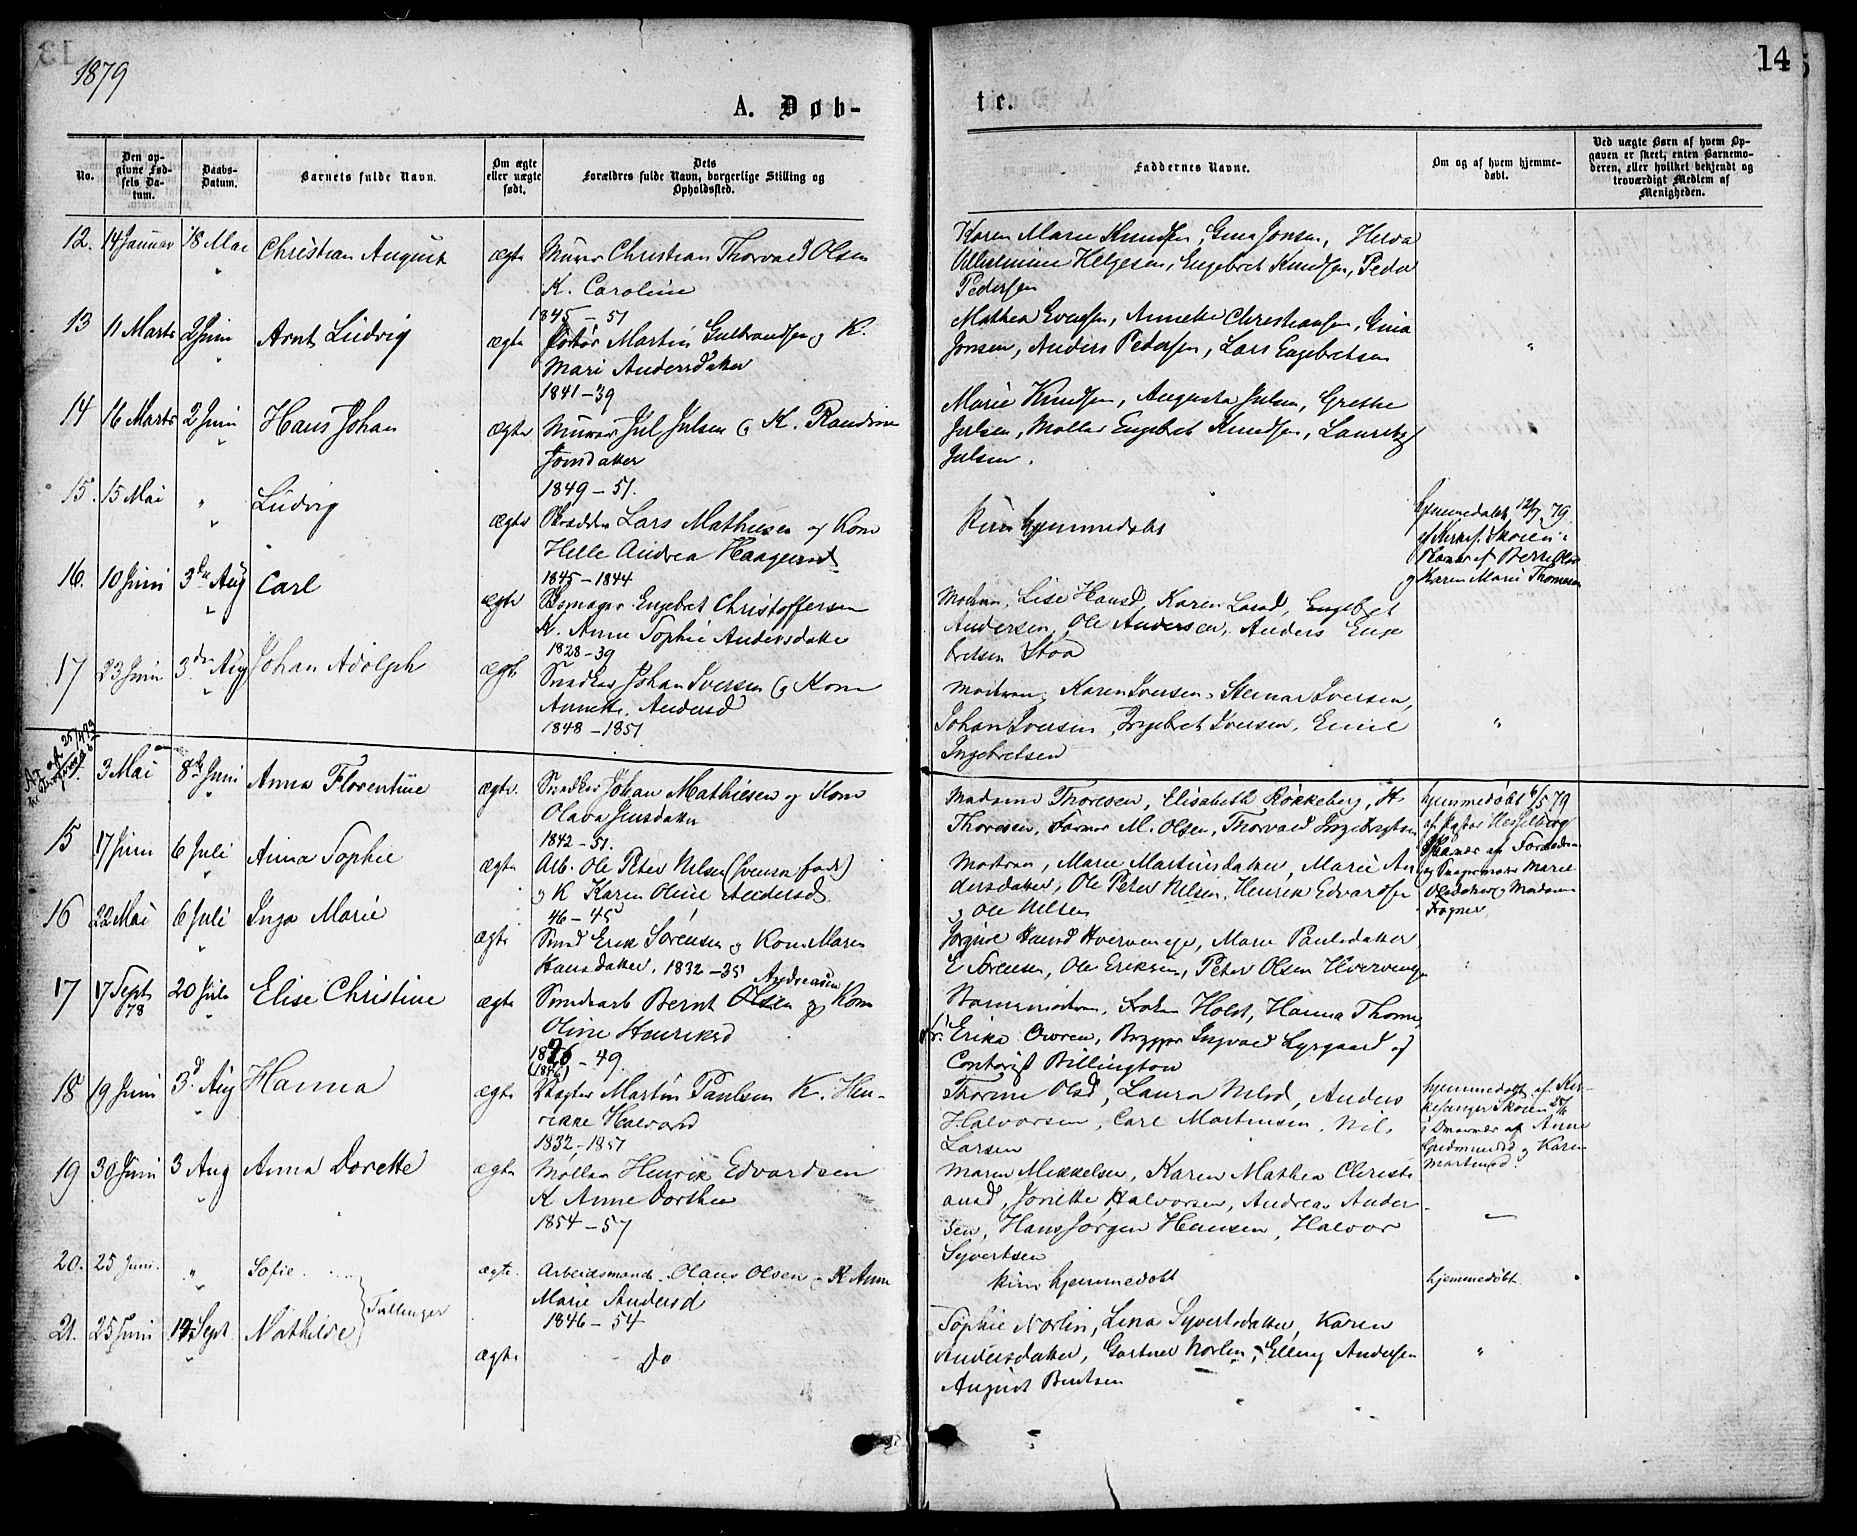 1879
14
A. Døb-
te.
No.
Den op-
givne Fød-
sels Da-
tum.
Daabs-
Datum.
Barnets fulde Navn.
Om ægte
eller uægte
født.
Dets
Forældres fulde Navn, borgerlige Stilling og
Opholdssted.
Faddernes Navne.
Om og af hvem hjemme-
døbt.
Ved uægte Børn af hvem Op-
gaven er skeet, enten Barnemo-
deren, eller hvilket bekjendt og
troværdigt Medlem af
Menigheden.
12. 14 Januar 18 Mai Christian August ægte Murer Christian Thorvald Olsen
K. Caroline
1845 – 51
Karen Marie Knudsen, Gina Jonsen, Helva
Vilhelmine Helgesen, Engebret Knudsen, Peder
Pedersen
13 11 Marts 2 Juni Arnt Ludvig ægte Martin Gulbrandsen og K.
Mari Andersdatter
1841 – 39
Mathea Evensen, Annette Christiansen, Gina
Jonsen, Anders Pedersen, Lars Engebretsen "
14 16 Marts 2 Juni Hans Johan ægte Murer Jul Julsen og K. Randine
Jonsdatter
1849 – 51.
Marie Knudsen, Augusta Julsen, Grethe
Julsen, Møller Engebret Knudsen, Lauritz
Julsen.
15. 15 Mai " Ludvig ægte Skrædder Lars Mathiesen og Kone
Helle Andrea Haagensd.
1845 – 1844
Kun hjemmedøbt
hjemmedøbt 12/7 79
af Kirkes. Skoien i
Nærvær af Berte Olsen
og Karen Marie Thomesen
16. 10 Juni 3die Aug Carl ægte Skomager Engebret Christoffersen
K. Anne Sophie Andersdatter
1828 – 39
Modren, Lise Hansd, Karen Larsd, Engebret
Andersen, Ole Andersen, Anders Enge
bretsen Stoa
17 23 Juni 3die Aug Johan Adolph ægte Snedker Johan Iversen og Kone
Annette Andersd
1848 – 1851
Modren, Karen Iversen, Steinar Iversen,
Johan Iversen, Ingebret Iversen, Emil
Ingebretsen "
3 Mai 8de Juni Anna Florentine ægte. Snedker Johan Mathiesen og Kone
Olava Jensdatter
1842 – 51.
Madame Thoresen, Elisabeth Røkkeberg, H.
Thoresen, Farver M. Olsen, Thorvald Ingebrigtsen
hjemmedøbt 6/5 79
af Pastor Hesselberg
i Nærvær af Forældrene
og Marie
Olsdatter og Madame
Fagner
15 17 Juni 6 Juli Anna Sophie ægte Arb. Ole Peter Nilsen (Svensk født)
og K Karen Oline Andersd.
46 – 45
Modren, Marie Martinsdatter, Marie An
dersdatter, Ole Peter Nilsen, Henrik Edvardsen
og Ole Nilsen
16 22 Mai 6 Juli Inga Marie ægte Smed Erik Sørensen og Kone Maren
Hansdatter. 1832 – 35
Jørgine Hansd Hvervenge, Marie Paulsdatter
E Sørensen, Ole Eriksen, Peter Olsen Hvervenge
17 17 Sept 78 20 Juli Elise Christine ægte Bernt Olsen Andreasen og Kone
Oline Henriksd
1826 – 49.
(1846)
Barnemodren, Frøken Holst, Hanna Thome,
fr. Erika Owren, Brygger Ingvald Lysgaard og
Contorist Billington
18 19 Juni 3d Aug Hanna ægte Martin Paulsen K. Hen-
rikke Halvorsd
1832, 1851
Thorine Olsd, Laura Nilsd, Anders
Halvorsen, Carl Mortensen, Nils
Larsen
hjemmedøbt af Kir-
kesanger Skoien
i Nærvær af Anne
Gudmundsd og Karen
Martinsd.
19 30 Juni 3 Aug Anna Dorette ægte Møller Henrik Edvardsen
K Anne Dorthea
1854 – 57
Maren Mikkelsen, Karen Mathea Christi
ansd, Jonette Halvorsen, Andreas Ander-
sen, Hans Jørgen Hansen, Halvor
Syvertsen
20. 25 Juni. " Sofie ægte. Arbeidsmand Olaus Olsen og K Anne
Marie Andersd
1846 – 54
kun hjemmedøbt hjemmedøbt.
Tvillinger
21. 25 Juni 14 Sept Mathilde ægte Do
Sophie Norlin, Lina Syvertsdatter, Karen
Andersdatter, Gartner Norlin, Elling Andersen
August Bentsen "